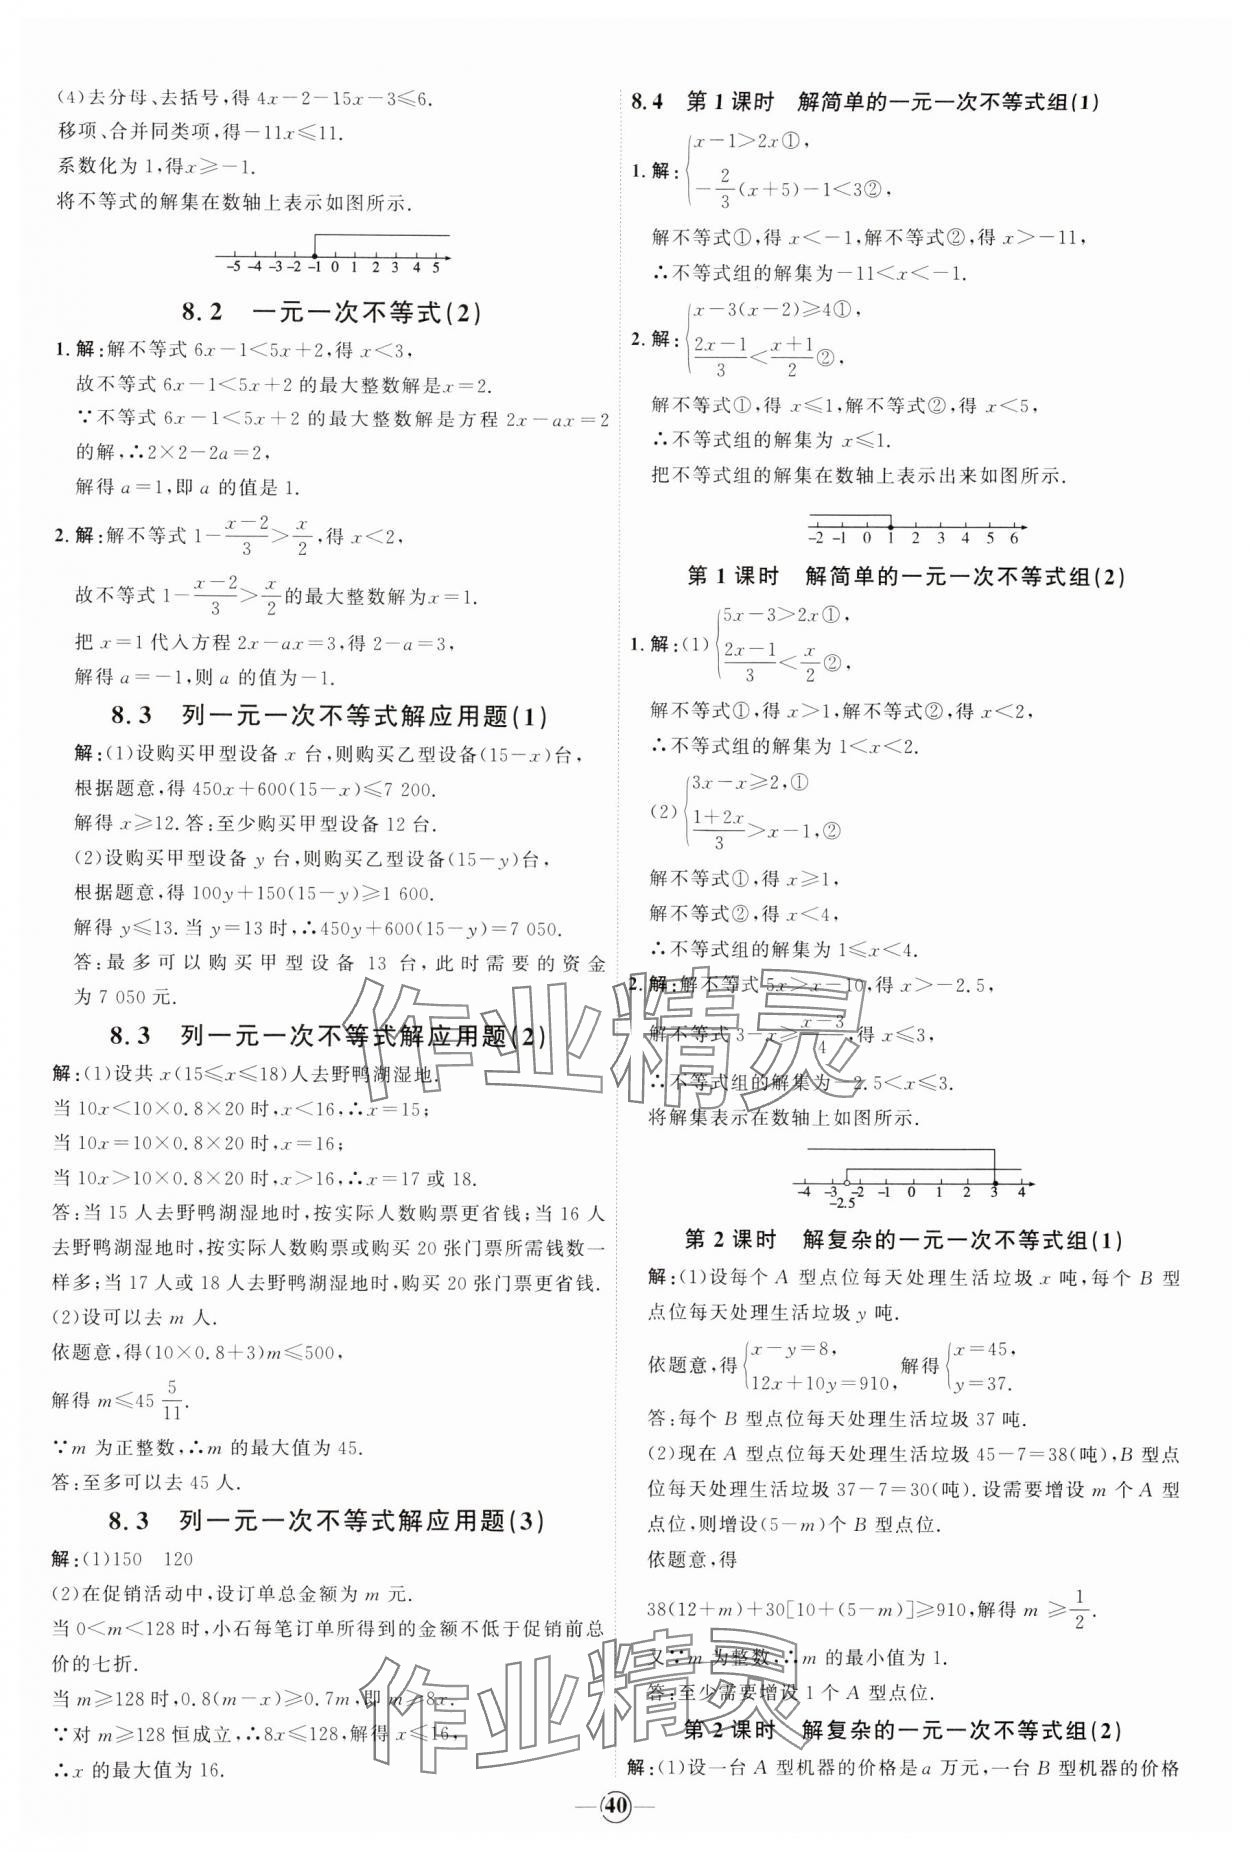 (4)去分母、去括号,得 4x-2-15x-3≤6.
移项、合并同类项,得-11x≤11.
系数化为 1,得x≥-1.
将不等式的解集在数轴上表示如图所示.
-5 -4 -3 -2 -1 0 1 2 3 4 5
8.2 一元一次不等式(2)
1.解:解不等式 6x-1<5x+2,得 x<3,
故不等式 6x-1<5x+2 的最大整数解是x=2.
∵不等式 6x-1<5x+2 的最大整数解是方程 2x-ax=2
的解,∴2×2-2a=2,
解得 a=1,即 a 的值是 1.
2.解:解不等式 1-\frac{x-2}{3}>\frac{x}{2},得 x<2,
故不等式 1-\frac{x-2}{3}>\frac{x}{2}的最大整数解为x=1.
把 x=1代入方程 2x-ax=3,得 2-a=3,
解得 a=-1,则 a 的值为-1.
8.3 列一元一次不等式解应用题(1)
解:(1)设购买甲型设备 x 台,则购买乙型设备(15-x)台,
根据题意,得 450x+600(15-x)≤7 200.
解得 x≥12.答:至少购买甲型设备 12 台.
(2)设购买甲型设备 y 台,则购买乙型设备(15-y)台,
根据题意,得 100y+150(15-y)≥1 600.
解得 y≤13.当 y=13 时,∴450y+600(15-y)=7 050.
答:最多可以购买甲型设备 13 台,此时需要的资金
为 7 050 元.
8.3 列一元一次不等式解应用题(2)
解:(1)设共 x(15≤x≤18)人去野鸭湖湿地.
当 10x<10×0.8×20 时,x<16,∴x=15;
当 10x=10×0.8×20 时,x=16;
当 10x>10×0.8×20 时,x>16,∴x=17 或 18.
答:当 15 人去野鸭湖湿地时,按实际人数购票更省钱;当 16 人
去野鸭湖湿地时,按实际人数购票或购买 20 张门票所需钱数一
样多;当 17 人或 18 人去野鸭湖湿地时,购买 20 张门票更省钱.
(2)设可以去 m 人.
依题意,得(10×0.8+3)m≤500,
解得 m≤45\frac{5}{11}.
∵m 为正整数,∴m 的最大值为 45.
答:至多可以去 45 人.
8.3 列一元一次不等式解应用题(3)
解:(1)150 120
(2)在促销活动中,设订单总金额为 m 元.
当 0<m<128 时,小石每笔订单所得到的金额不低于促销前总
价的七折.
当 m≥128 时,0.8(m-x)≥0.7m,即 m≥8x.
∵对 m≥128 恒成立,∴8x≤128,解得 x≤16,
∴x 的最大值为 16.
8.4 第 1 课时 解简单的一元一次不等式组(1)
1.解:{x-1>2x①,
-\frac{2}{3}(x+5)-1<3②,
解不等式①,得 x<-1,解不等式②,得 x>-11,
∴不等式组的解集为-11<x<-1.
2.解:{x-3(x-2)≥4①,
\frac{2x-1}{3}<\frac{x+1}{2}②,
解不等式①,得 x≤1,解不等式②,得 x<5,
∴不等式组的解集为 x≤1.
把不等式组的解集在数轴上表示出来如图所示.
-2 -1 0 1 2 3 4 5 6
第 1 课时 解简单的一元一次不等式组(2)
1.解:(1){5x-3>2x①,
\frac{2x-1}{3}<\frac{x}{2}②,
解不等式①,得 x>1,解不等式②,得 x<2,
∴不等式组的解集为 1<x<2.
(2){3x-x≥2,①
\frac{1+2x}{3}>x-1,②
解不等式①,得 x≥1,
解不等式②,得 x<4,
∴不等式组的解集为 1≤x<4.
2.解:解不等式 5x>x-10,得 x>-2.5,
解不等式 3-x≥\frac{x-3}{4},得 x≤3,
∴不等式组的解集为-2.5<x≤3.
将解集表示在数轴上如图所示.
-4 -3 -2 -1 0 1 2 3 4
-2.5
第 2 课时 解复杂的一元一次不等式组(1)
解:(1)设每个 A 型点位每天处理生活垃圾 x 吨,每个 B 型
点位每天处理生活垃圾 y 吨.
依题意,得{x-y=8, 12x+10y=910, 解得{x=45, y=37.
答:每个 B 型点位每天处理生活垃圾 37 吨.
(2)现在 A 型点位每天处理生活垃圾 45-7=38(吨),B 型点
位每天处理生活垃圾 37-7=30(吨).设需要增设 m 个 A 型
点位,则增设(5-m)个 B 型点位.
依题意,得
38(12+m)+30[10+(5-m)]≥910,解得 m≥\frac{1}{2}.
又∵m 为整数,∴m 的最小值为 1.
答:至少需要增设 1 个 A 型点位.
第 2 课时 解复杂的一元一次不等式组(2)
解:(1)设一台 A 型机器的价格是 a 万元,一台 B 型机器的价格
40
作业精灵
作业精灵